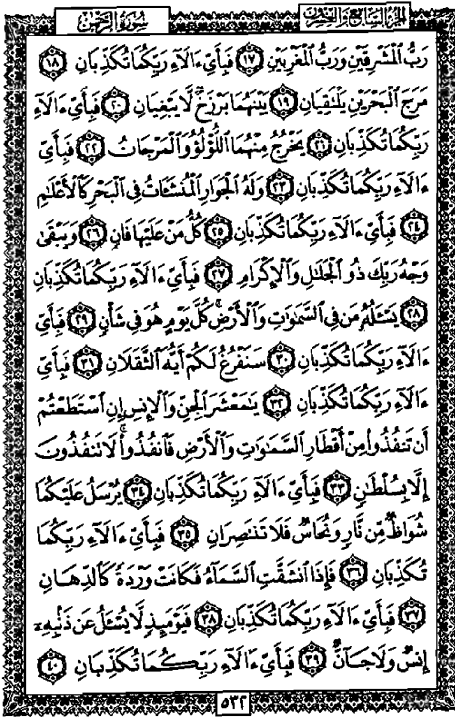 الجزء السابع والعشرون سورة الرحمن
رَبُّ ٱلْمَشْرِقَيْنِ وَرَبُّ ٱلْمَغْرِبَيْنِ ۝١٧ فَبِأَيِّ ءَالَآءِ رَبِّكُمَا تُكَذِّبَانِ ۝١٨
مَرَجَ ٱلْبَحْرَيْنِ يَلْتَقِيَانِ ۝١٩ بَيْنَهُمَا بَرْزَخٌ لَّا يَبْغِيَانِ ۝٢٠ فَبِأَيِّ ءَالَآءِ
رَبِّكُمَا تُكَذِّبَانِ ۝٢١ يَخْرُجُ مِنْهُمَا ٱللُّؤْلُؤُ وَٱلْمَرْجَانُ ۝٢٢ فَبِأَيِّ
ءَالَآءِ رَبِّكُمَا تُكَذِّبَانِ ۝٢٣ وَلَهُ ٱلْجَوَارِ ٱلْمُنشَـَٔاتُ فِى ٱلْبَحْرِ كَٱلْأَعْلَٰمِ
۝٢٤ فَبِأَيِّ ءَالَآءِ رَبِّكُمَا تُكَذِّبَانِ ۝٢٥ كُلُّ مَنْ عَلَيْهَا فَانٍ ۝٢٦ وَيَبْقَىٰ
وَجْهُ رَبِّكَ ذُو ٱلْجَلَٰلِ وَٱلْإِكْرَامِ ۝٢٧ فَبِأَيِّ ءَالَآءِ رَبِّكُمَا تُكَذِّبَانِ
۝٢٨ يَسْـَٔلُهُۥ مَن فِى ٱلسَّمَٰوَٰتِ وَٱلْأَرْضِ ۚ كُلَّ يَوْمٍ هُوَ فِى شَأْنٍ ۝٢٩ فَبِأَيِّ
ءَالَآءِ رَبِّكُمَا تُكَذِّبَانِ ۝٣٠ سَنَفْرُغُ لَكُمْ أَيُّهَ ٱلثَّقَلَانِ ۝٣١ فَبِأَيِّ
ءَالَآءِ رَبِّكُمَا تُكَذِّبَانِ ۝٣٢ يَٰمَعْشَرَ ٱلْجِنِّ وَٱلْإِنسِ إِنِ ٱسْتَطَعْتُمْ
أَن تَنفُذُوا۟ مِنْ أَقْطَارِ ٱلسَّمَٰوَٰتِ وَٱلْأَرْضِ فَٱنفُذُوا۟ ۚ لَا تَنفُذُونَ
إِلَّا بِسُلْطَٰنٍ ۝٣٣ فَبِأَيِّ ءَالَآءِ رَبِّكُمَا تُكَذِّبَانِ ۝٣٤ يُرْسَلُ عَلَيْكُمَا
شُوَاظٌ مِّن نَّارٍ وَنُحَاسٌ فَلَا تَنتَصِرَانِ ۝٣٥ فَبِأَيِّ ءَالَآءِ رَبِّكُمَا
تُكَذِّبَانِ ۝٣٦ فَإِذَا ٱنشَقَّتِ ٱلسَّمَآءُ فَكَانَتْ وَرْدَةً كَٱلدِّهَانِ
۝٣٧ فَبِأَيِّ ءَالَآءِ رَبِّكُمَا تُكَذِّبَانِ ۝٣٨ فَيَوْمَئِذٍ لَّا يُسْـَٔلُ عَن ذَنۢبِهِۦٓ
إِنسٌ وَلَا جَآنٌّ ۝٣٩ فَبِأَيِّ ءَالَآءِ رَبِّكُمَا تُكَذِّبَانِ ۝٤٠
٥٣٢